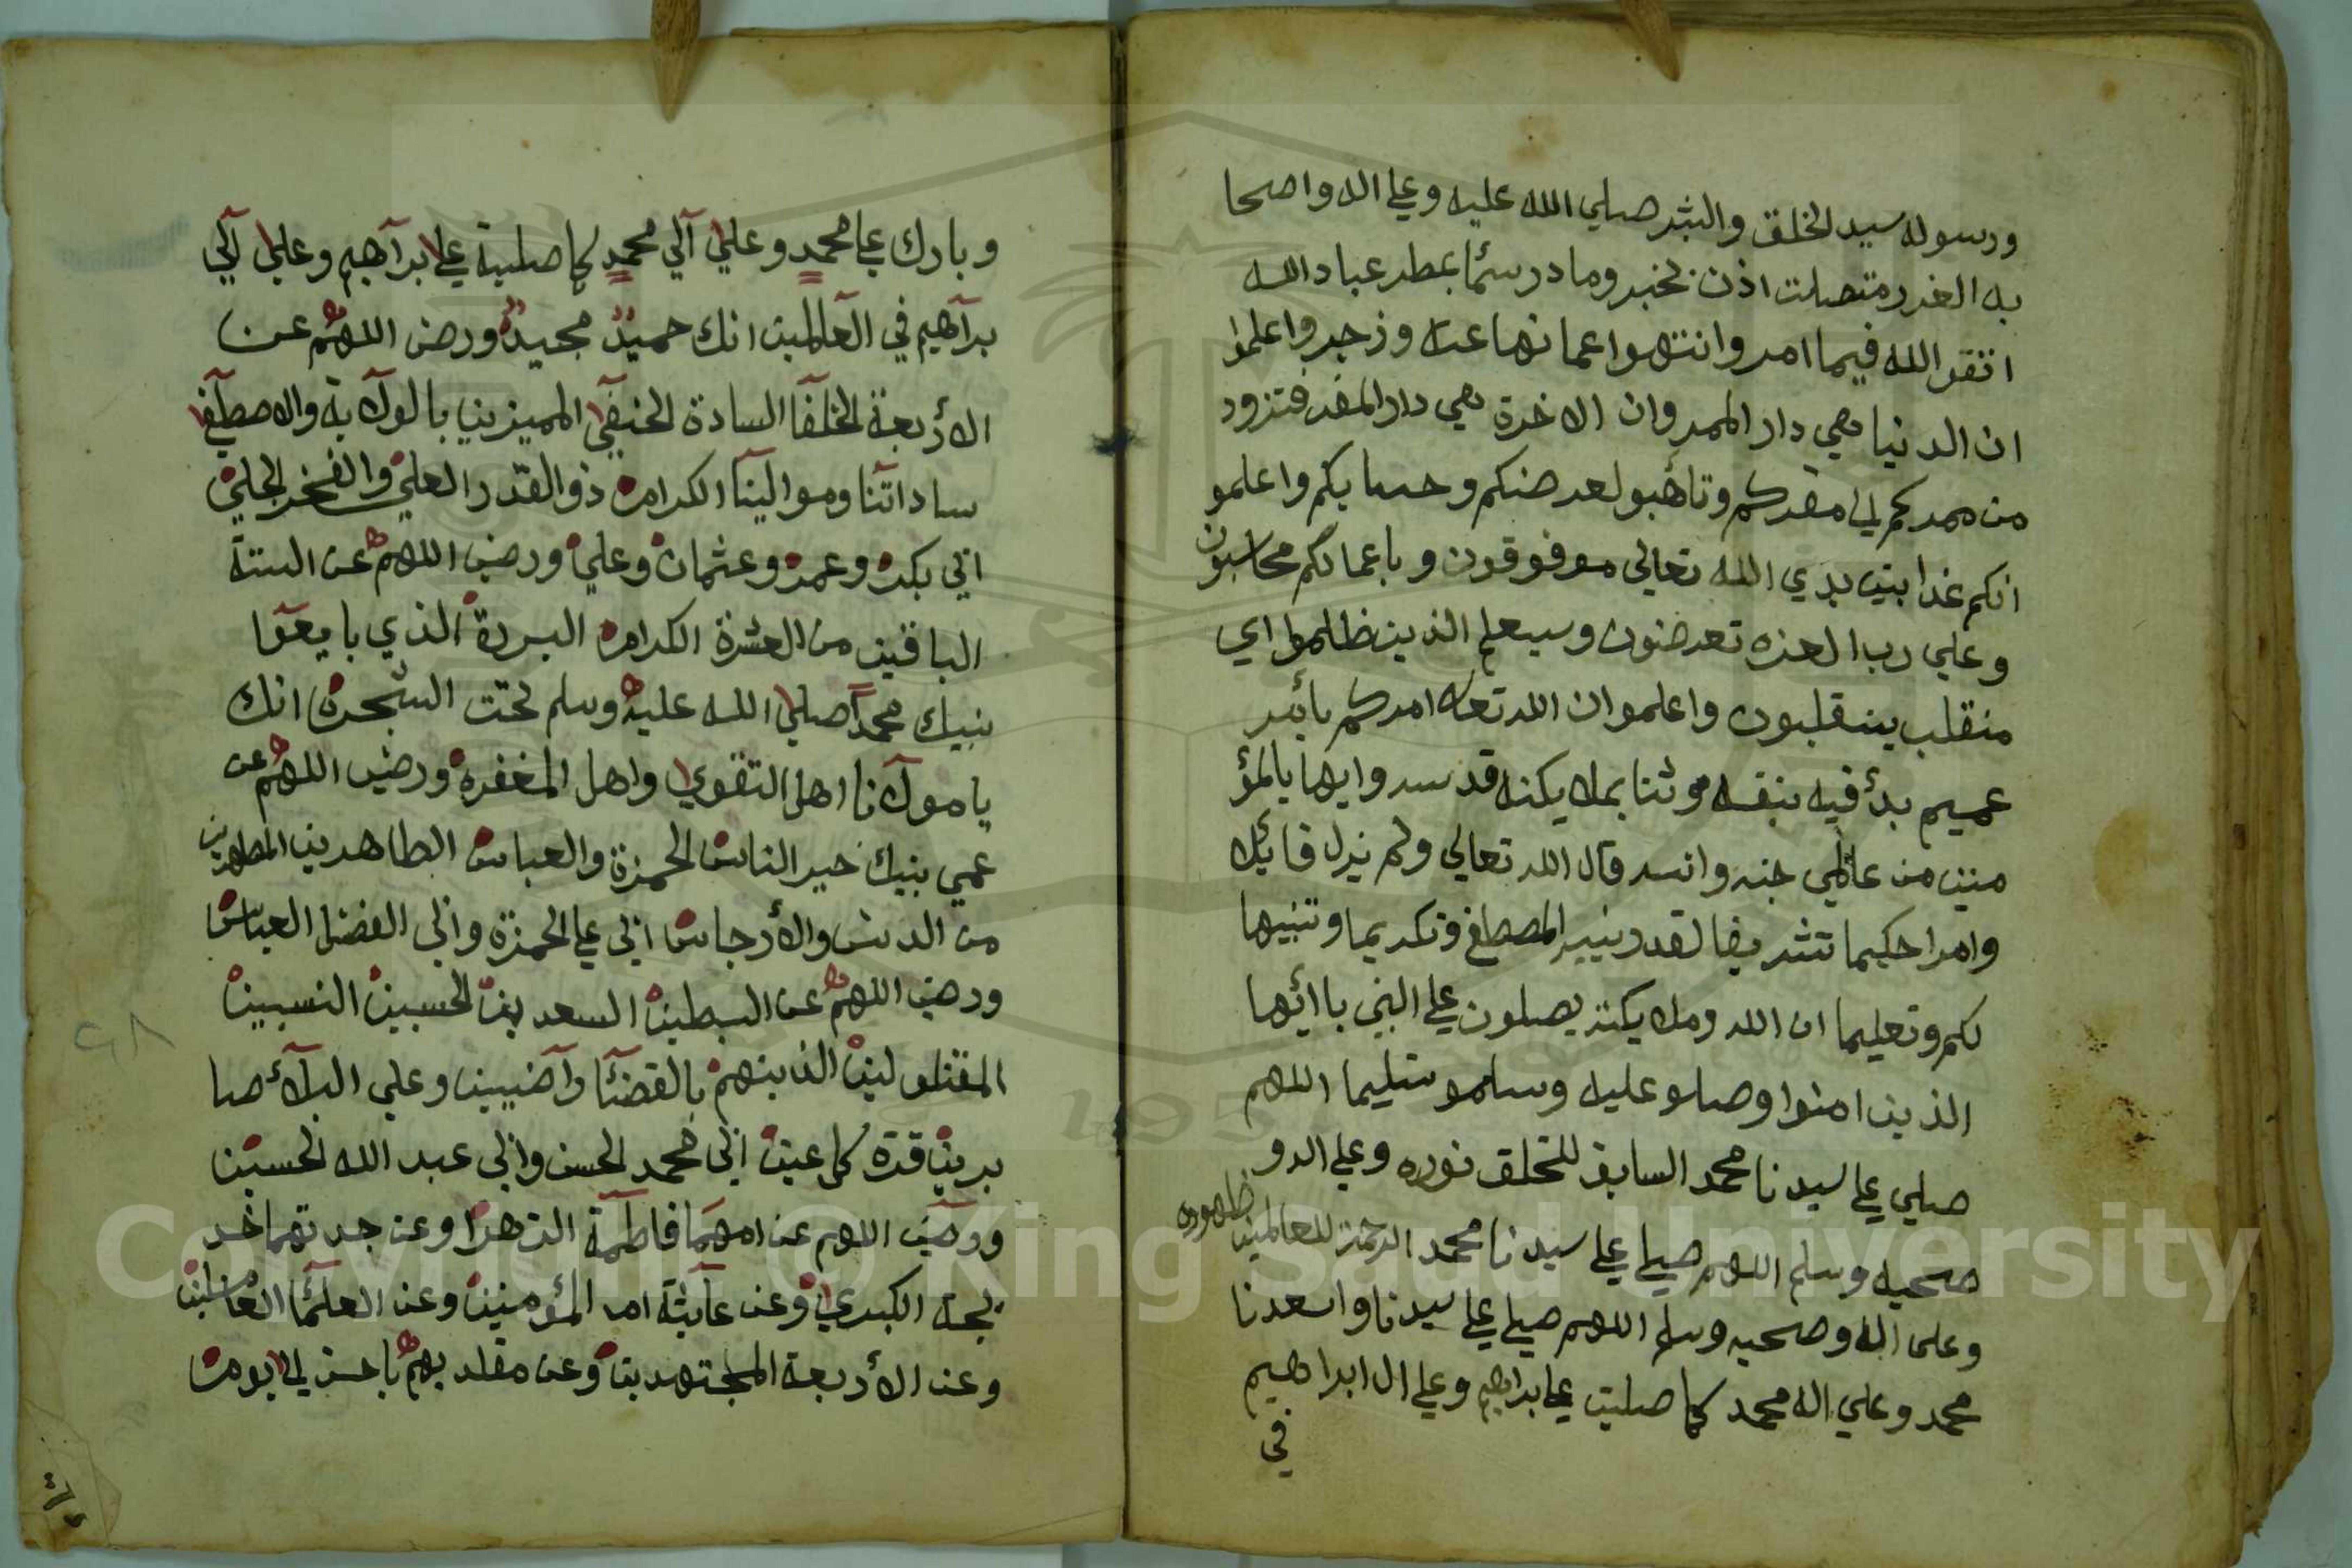 ورسوله سيد الخلق والبشر صلي الله عليه وعلي اله واصحا
به الغرر متصلت اذن بخبر وما در سئما بمطر عباد الله
اتقو الله فيما امر وانتهوا عما نها عنه وزجر واعلموا
ان الدنيا هي دار الممر وان الاخرة هي دار المقر فتزود
من ممركم لي مقركم وتاهبو لعرضكم وحسابكم واعلمو
انكم غدا بين يدي الله تعالي موفوقون وباعمالكم محاسبون
وعلي رب العزه تعرضون وسيعلم الذين ظلموا اي
منقلب ينقلبون واعلموا ان الله تعالى امركم بائمر
عميم بدأ فيه بنفسه وثنا بملايكته قدسه وايها يالمؤ
منين من عالمي جنه وانسه قال الله تعالي ولم يزل قائلا
وامرا حكيما تشريفا لقدر نبيه المصطفي وتكريما وتنبيها
لكم وتعليما ان الله وملايكته يصلون علي النبي ياائيها
الذين امنوا وصلو عليه وسلمو تسليما اللهم
صلي علي سيدنا محمد السابق للخلق نوره وعلي اله و
صحبه وسلم اللهم صلي علي سيدنا محمد الرحمة للعالمين ظهوره
وعلى اله وصحبه وسلم اللهم صلي علي سيدنا واسعدنا
محمد وعلي اله محمد كما صليت علي ابراهيم وعلي ال ابراهيم
في
وبارك علي محمد وعلي آلي محمد كما صلية علي ابرآهيم وعلي آلي
برآهيم في العآلمين انك حميد مجيد ورض اللهم عن
الأربعة الخلفآ السادة الحنيفي المميزين بالولآية والاصطفي
ساداتنا وموالينا الكرام ذو القدر العلي والفخر الجلي
ابي بكر وعمر وعثمان وعلي ورض اللهم عن الستة
الباقين من العشرة الكرام البررة الذي بايعوا
نبيك محمدا صلي الله عليه وسلم تحت الشجرة انك
يا مولآنا اهل التقوي واهل المغفرة ورض اللهم عن
عمي نبيك خير الناس الحمزة والعباس الطاهرين المطهرين
من الدنس والأرجاس ابي علي الحمزة وابي الفضل العباس
ورض اللهم عن السبطين السعدين الحسبين النسيبين
المقتولين الذينهم بالقضآئا رآضيين وعلي البلآئ صا
برين قرة كل عين ابي محمد الحسن وابي عبد الله الحسين
ورض اللهم عن امهما فاطمة الزهرا وعن جدتهما خد
يجة الكبري وعن عآيشة ام المؤمنين وعن العلمآئ العاملين
وعن الأربعة المجتهدين وعن مقلديهم باحسن لي يوم
٢٨